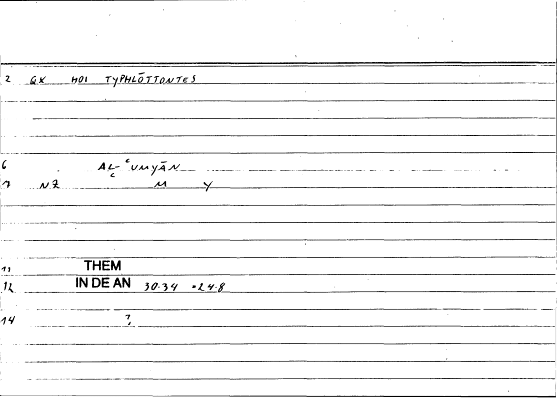 2 GK HOI TYPHLŌTTONTES
6 AL-ʿUMYĀN
7 NZ M Y
11 THEM
12 IN DE AN 30.34 = 24.8
14 ?